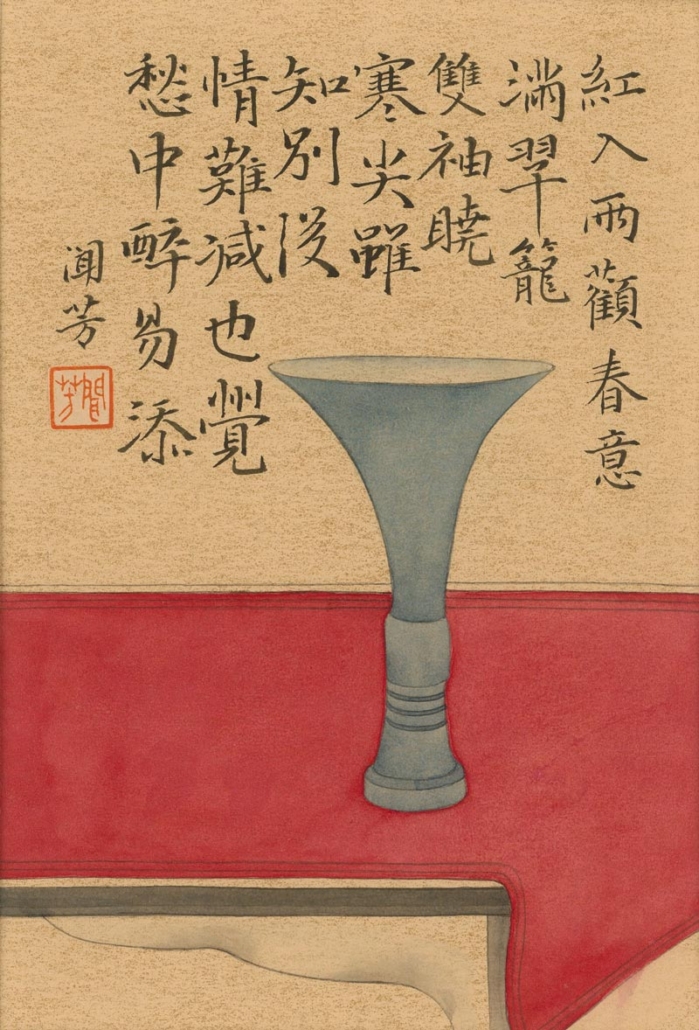 紅入兩顴春意
滿翠籠
雙袖曉
寒尖雖
知別後
情難減也覺
愁中醉易添
聞芳
聞芳